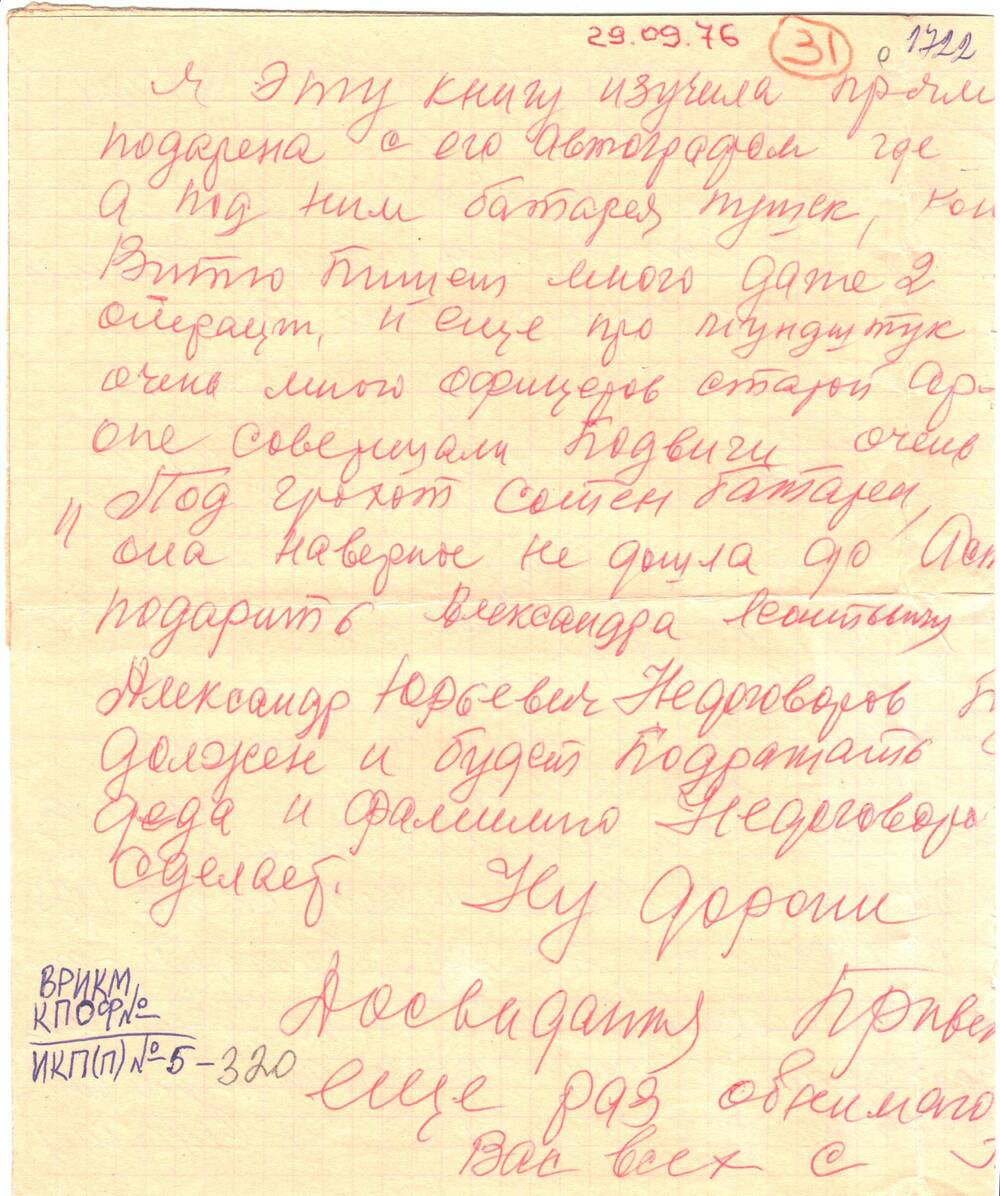 29.09.76 31 1722
Я эту книгу изучила прям
подарена с его автографом где
а под ним батарея пушек,
Витю пишет много даже 2
операц, и еще про мундштук
очень много офицеров старой ар-
оне совершали подвиги очень
"Под грохот сотен батарей,
она наверное не дошла до Аст
подарить Александра Леонтьевичу
Александр Юрьевич Недоговоров
должен и будет подражать
деда и фамилию Недоговоро
сделает. Ну дороги
Досвидания Привет
еще раз обнимаю
Вас всех с
ВРИКМ
КПОФ№
ИКП(П)№5-320